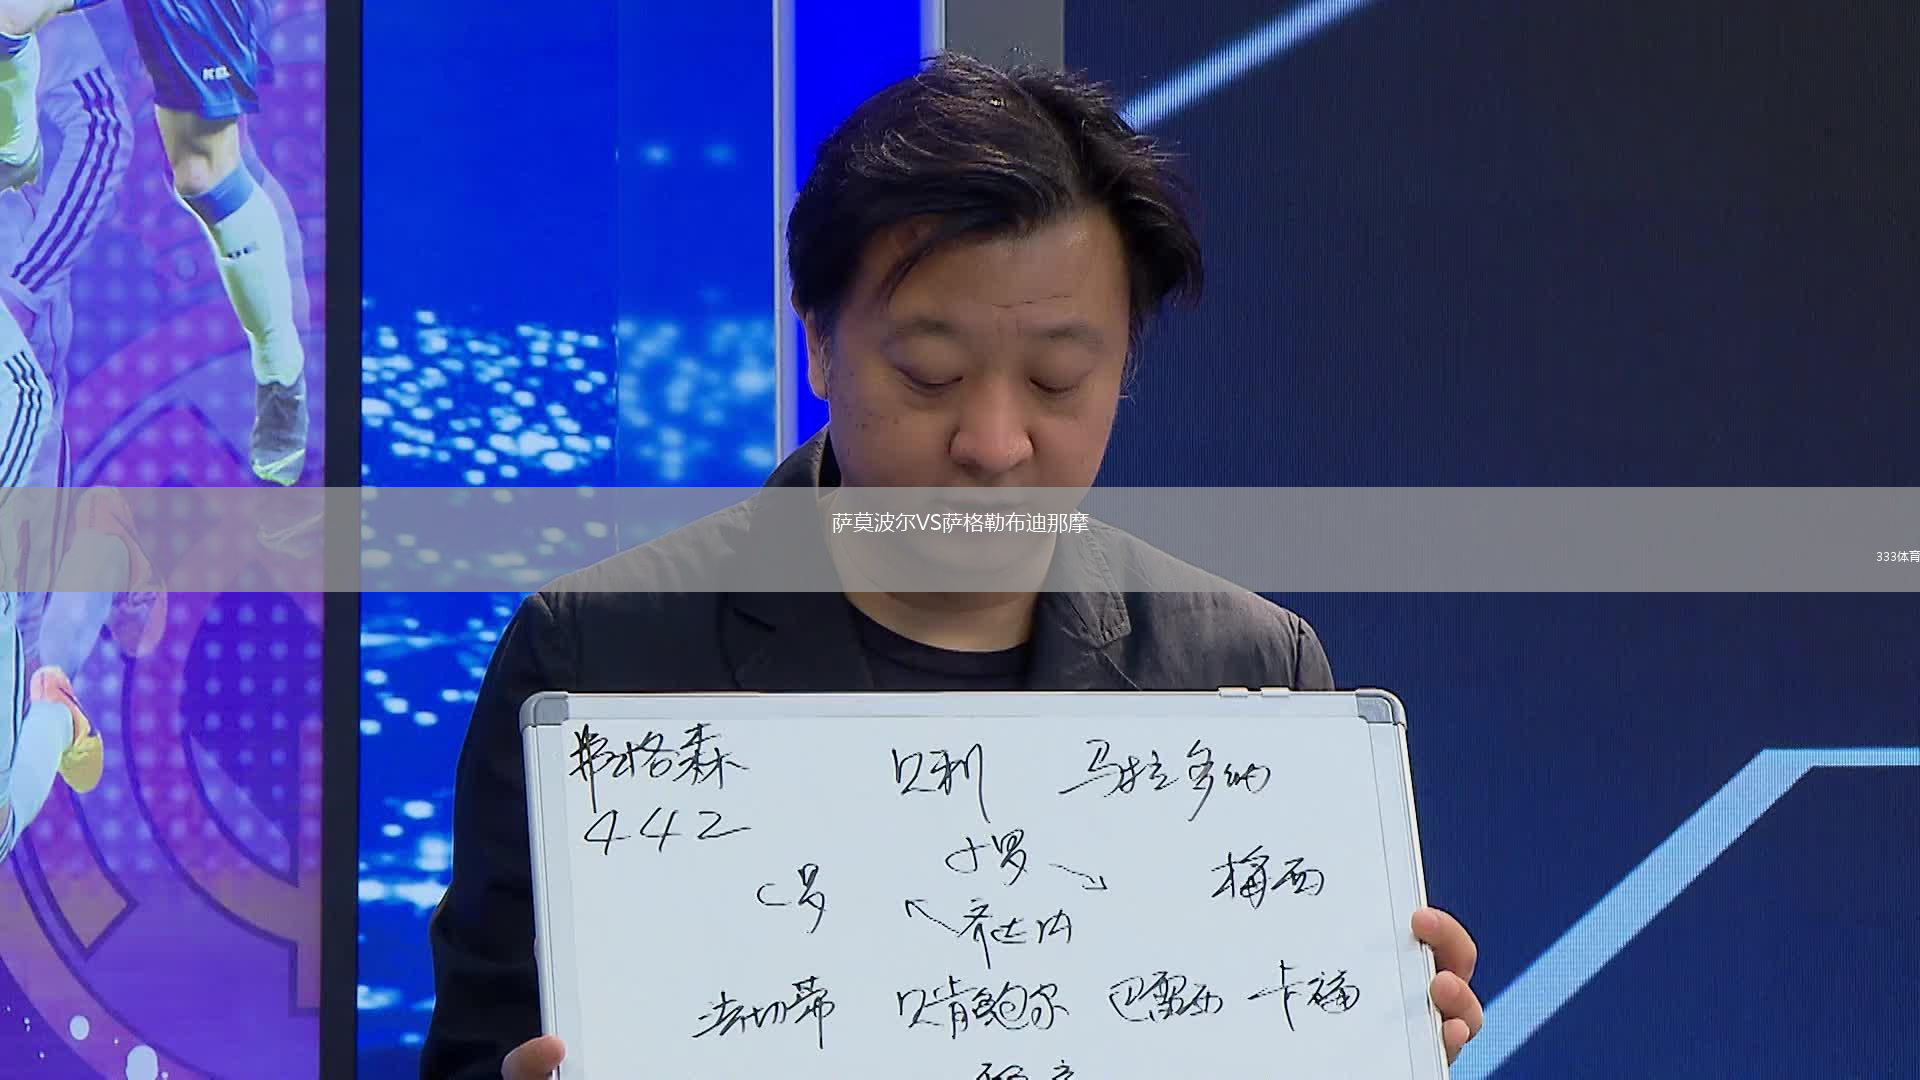 萨莫波尔VS萨格勒布迪那摩
333体育
弗格森 贝利 马拉多纳
442
小罗
C罗 梅西
齐达内
法切蒂 贝肯鲍尔 巴雷西 卡福